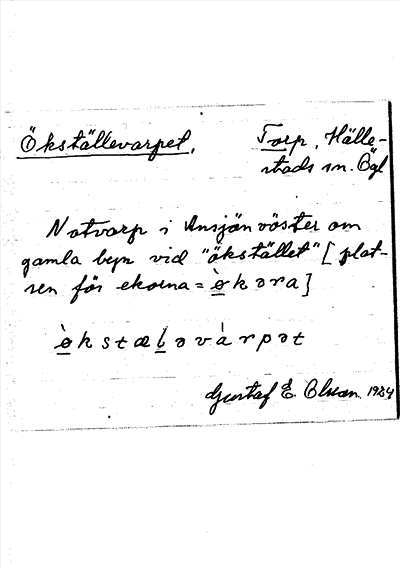 Ökställevarpet.
Torp, Hälle-
stads sn. Ögl
Notvarp i Ansjön väster om
gamla byn vid "ökstället" [plat-
sen för ekorna = ø̀kəra]
ø̀kstæḷəvárpət
Gustaf E. Olsson 1934